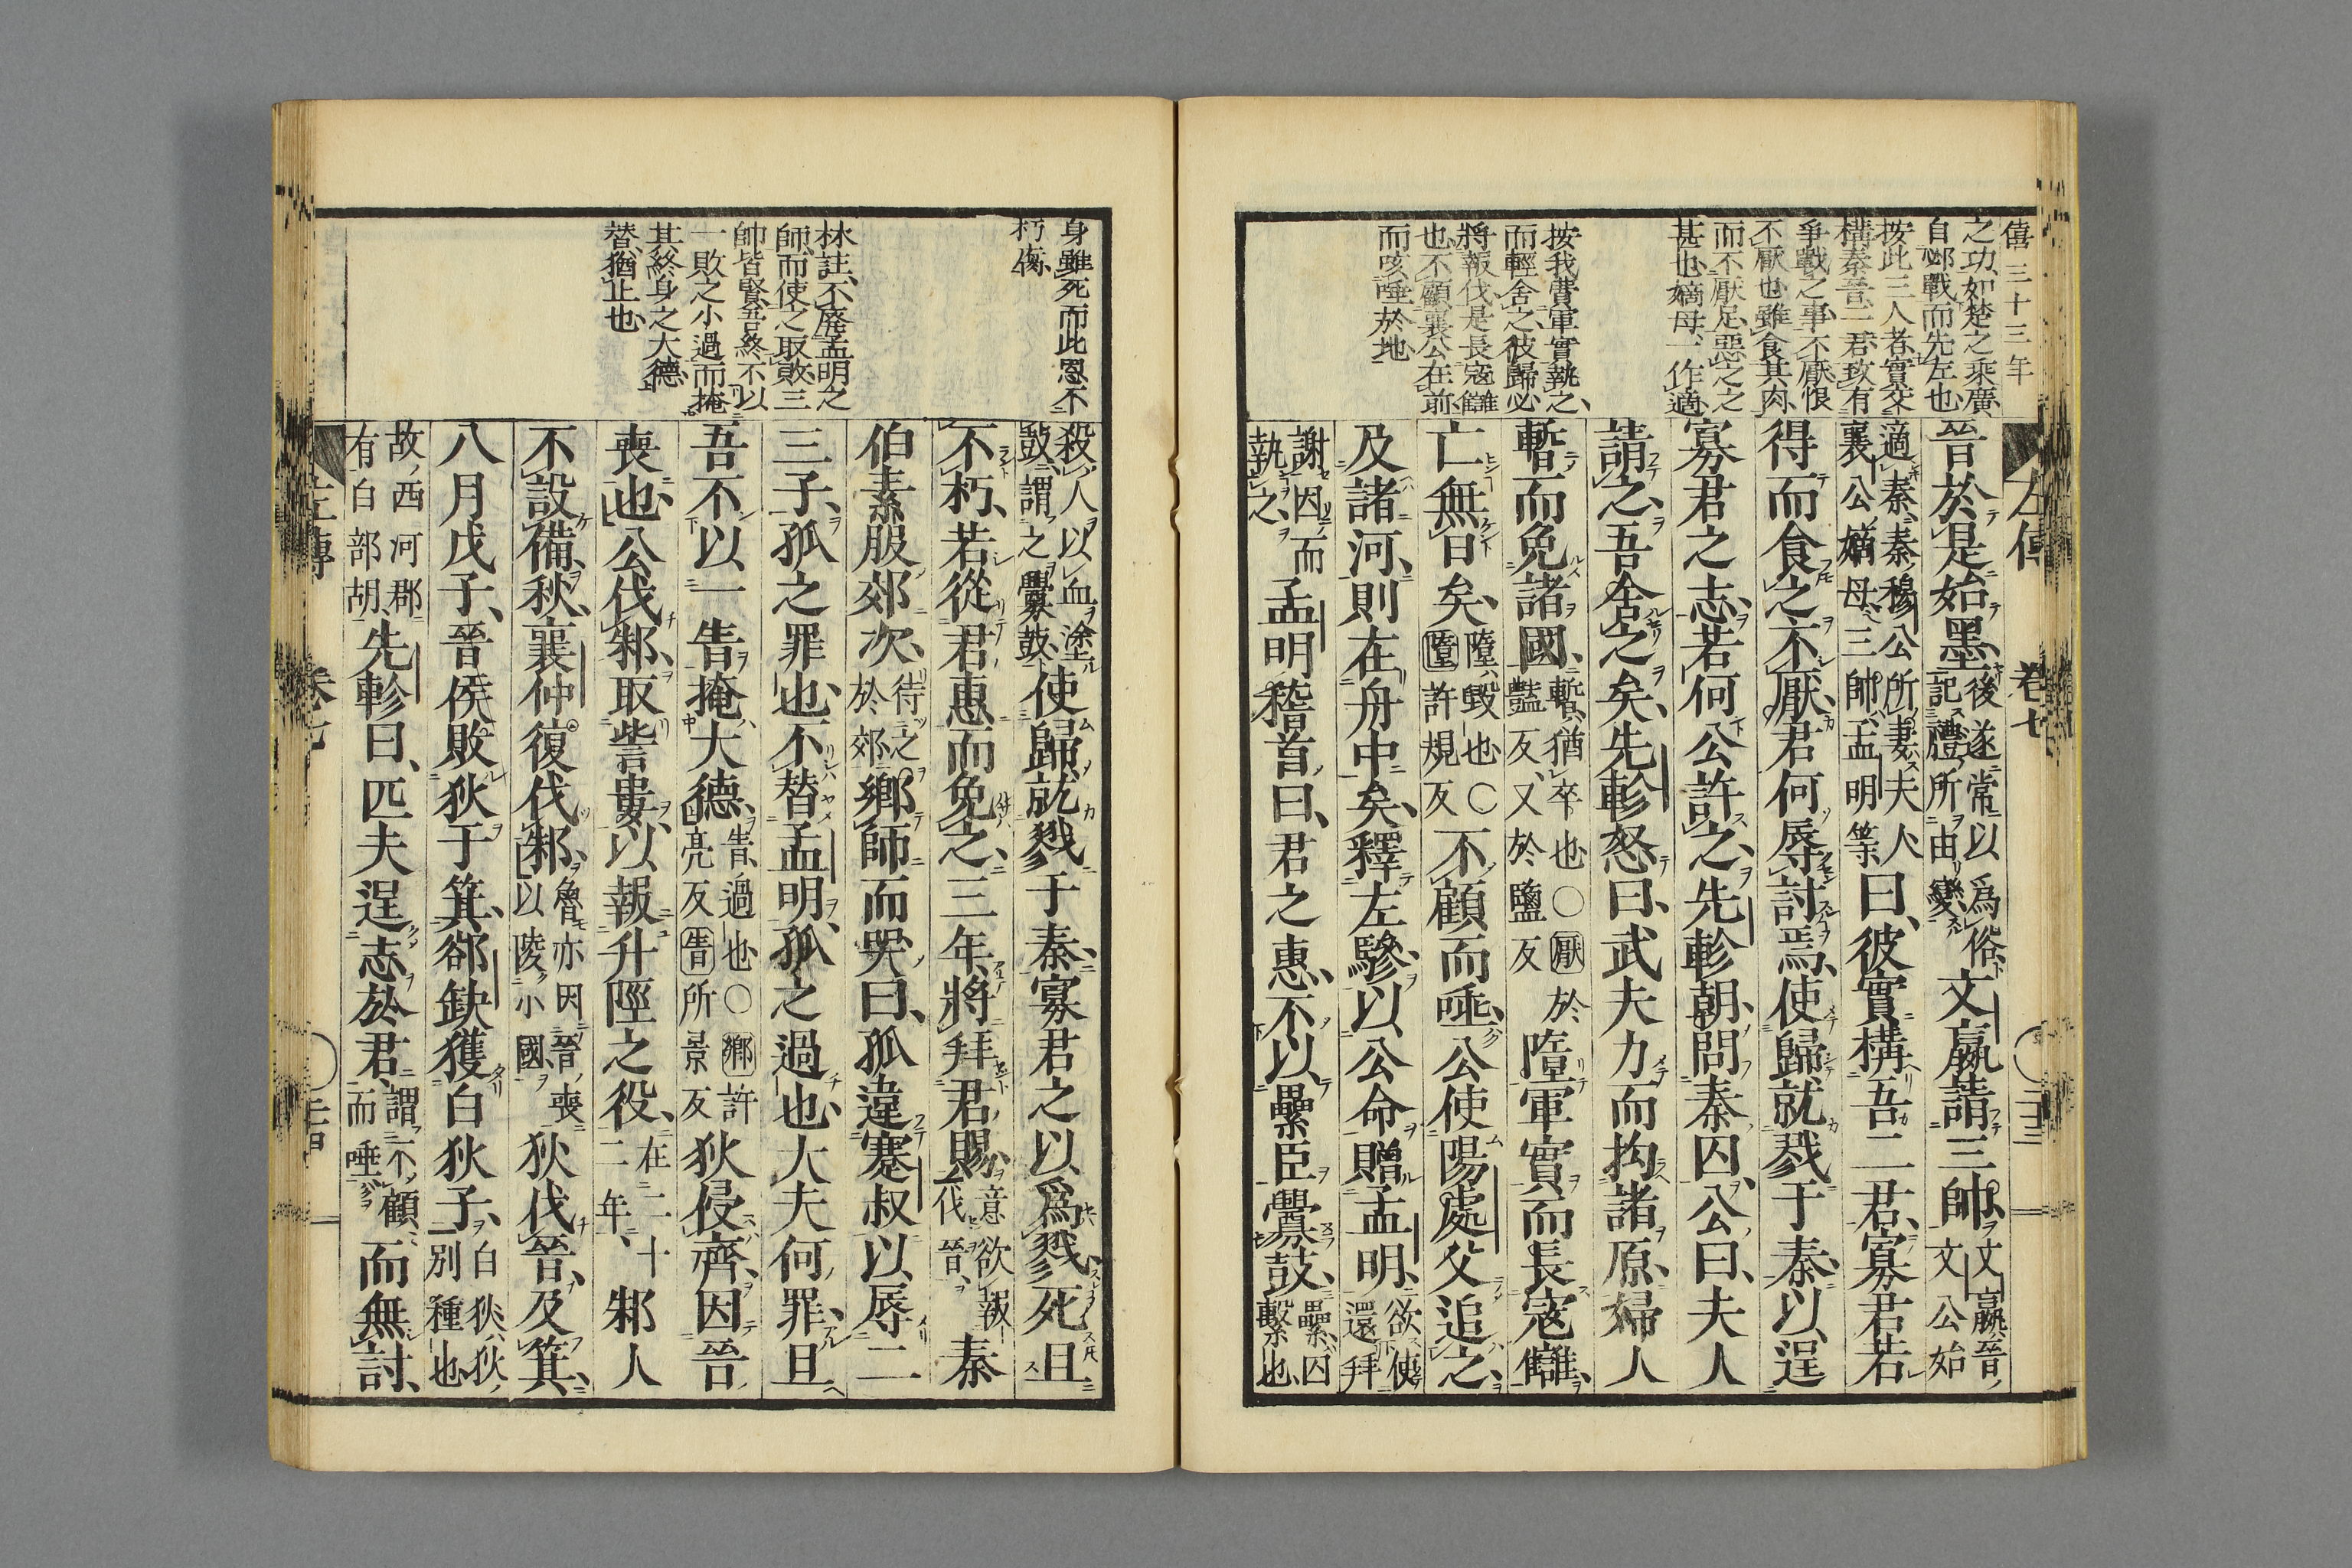 僖三十三年
之功如楚之乘廣
自邲戰而先左也
按此三人者實交
構秦晉二君致有
爭戰之事不厭恨
不厭也雖食其肉
而不厭足惡之之
甚也嫡母一作適
按我費軍實執之
而輕舍之彼歸必
將報伐是長寇讎
也不顧襄公在前
而咳唾於地
左傳 卷七
晉於是始墨後遂常以爲俗記禮所由變文嬴請三帥文嬴晉文公始
適秦秦穆公所妻夫人襄公嫡母三帥孟明等曰彼實構吾二君寡君若
得而食之不厭君何辱討焉使歸就戮于秦以逞
寡君之志若何公許之先軫朝問秦囚公曰夫人
請之吾舍之矣先軫怒曰武夫力而拘諸原婦人
暫而免諸國暫猶卒也○厭於豔反又於鹽反墮軍實而長寇讎
亡無日矣墮毀也○墮許規反不顧而唾公使陽處父追之
及諸河則在舟中矣釋左驂以公命贈孟明欲使還拜
謝因而執之孟明稽首曰君之惠不以纍臣釁鼓纍囚繫也
身雖死而此恩不
朽傷
林註不廢孟明之
師而使之取敗三
帥皆賢吾終不以
一敗之小過而掩
其終身之大德
替猶止也
殺人以血塗鼓謂之釁鼓使歸就戮于秦寡君之以爲戮死且
不朽若從君惠而免之三年將拜君賜意欲報伐晉秦
伯素服郊次待之於郊鄉師而哭曰孤違蹇叔以辱二
三子孤之罪也不替孟明孤之過也大夫何罪且
吾不以一眚掩大德眚過也○鄉許亮反眚所景反狄侵齊因晉
喪也公伐邾取訾婁以報升陘之役在二十二年邾人
不設備秋襄仲復伐邾魯亦因晉喪以陵小國狄伐晉及箕
八月戊子晉侯敗狄于箕郤缺獲白狄子白狄狄別種也
故西河郡有白部胡先軫曰匹夫逞志於君謂不顧而唾而無討
左傳 卷七